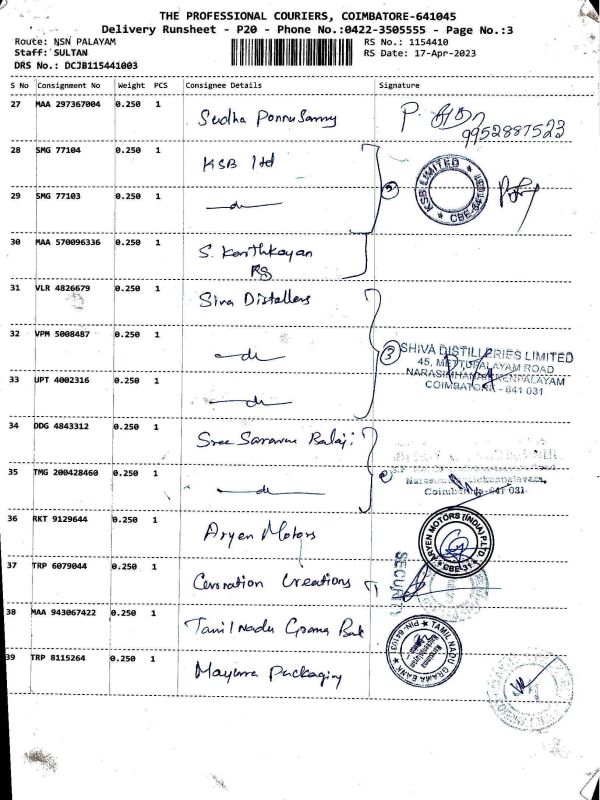 THE PROFESSIONAL COURIERS, COIMBATORE-641045
Delivery Runsheet - P20 - Phone No.:0422-3505555 - Page No.:3
Route: NSN PALAYAM
RS No.: 1154410
Staff: SULTAN
RS Date: 17-Apr-2023
DRS No.: DCJB115441003
S No Consignment No Weight PCS Consignee Details Signature
27 MAA 297367004 0.250 1 Sudha Ponnusamy P. 9952887523
28 SMG 77104 0.250 1 KSB ltd
KSB LIMITED ★ CBE-641 031
29 SMG 77103 0.250 1 — do — 2
30 MAA 570096336 0.250 1 S. Karthikayan
RS
31 VLR 4826679 0.250 1 Siva Distallers
32 VPM 5008487 0.250 1 — do — 3
SHIVA DISTILLERIES LIMITED
45, METTUPALAYAM ROAD
NARASIMHANAICKENPALAYAM
COIMBATORE - 641 031
33 UPT 4002316 0.250 1 — do —
34 DDG 4843312 0.250 1 Sree Saravana Balaji
35 TMG 200428460 0.250 1 — do — 2
Coimbatore-641 031
36 RKT 9129644 0.250 1 Aryen Motors
ARYEN MOTORS (INDIA) P.LTD. ★ CBE-31 ★
37 TRP 6079044 0.250 1 Coronation Creations
SECURITY
38 MAA 943067422 0.250 1 Tamil Nadu Grama Bank
TAMIL NADU GRAMA BANK ★ PIN-641031 ★
39 TRP 8115264 0.250 1 Mayura Packaging